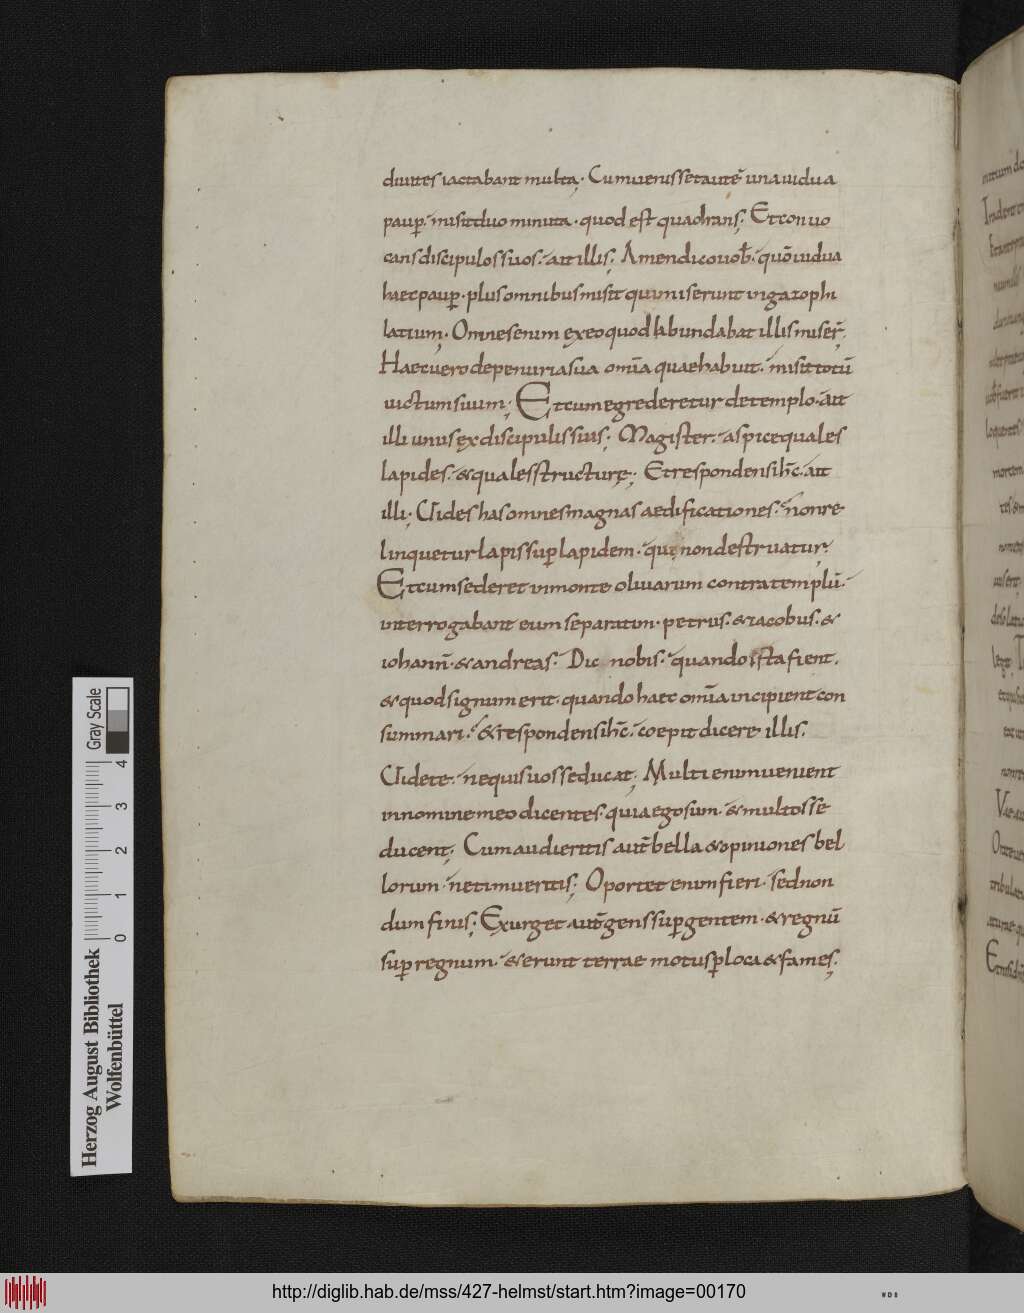 diuites iactabant multa. Cum uenisset autē una uidua
paup. misit duo minuta. quod est quadrans; Et conuo
cans discipulos suos. ait illis; Amen dico uob. quō uidua
haec paup. plus omnibus misit qui miserunt in gazophi
latium; Omnes enim ex eo quod habundabat illis miser.
Haec uero de penuria sua omīa quae habuit. misit totū
uictum suum; Et cum egrederetur de templo. ait
illi unus ex discipulis suis; Magister. aspice quales
lapides. & quales structurę; Et respondens ihc̄. ait
illi; Uides has omnes magnas aedificationes. non re
linquetur lapis sup lapidem. qui non destruatur;
Et cum sederet in monte oliuarum contra templū.
interrogabant eum separatim. petrus. & iacobus. &
iohann̄. & andreas. Dic nobis. quando ista fient.
& quod signum erit. quando haec omīa incipient con
summari. & respondens ihc̄. coepit dicere illis.
Uidete. ne quis uos seducat; Multi enim uenient
in nomine meo dicentes. quia ego sum. & multos se
ducent; Cum audieritis aut̄ bella & opiniones bel
lorum. ne timueritis; Oportet enim fieri. sed non
dum finis; Exurget aut̄ gens sup gentem. & regnū
sup regnum. & erunt terrae motus p loca & fames;
Herzog August Bibliothek
Wolfenbüttel
0 1 2 3 4
Gray Scale
http://diglib.hab.de/mss/427-helmst/start.htm?image=00170